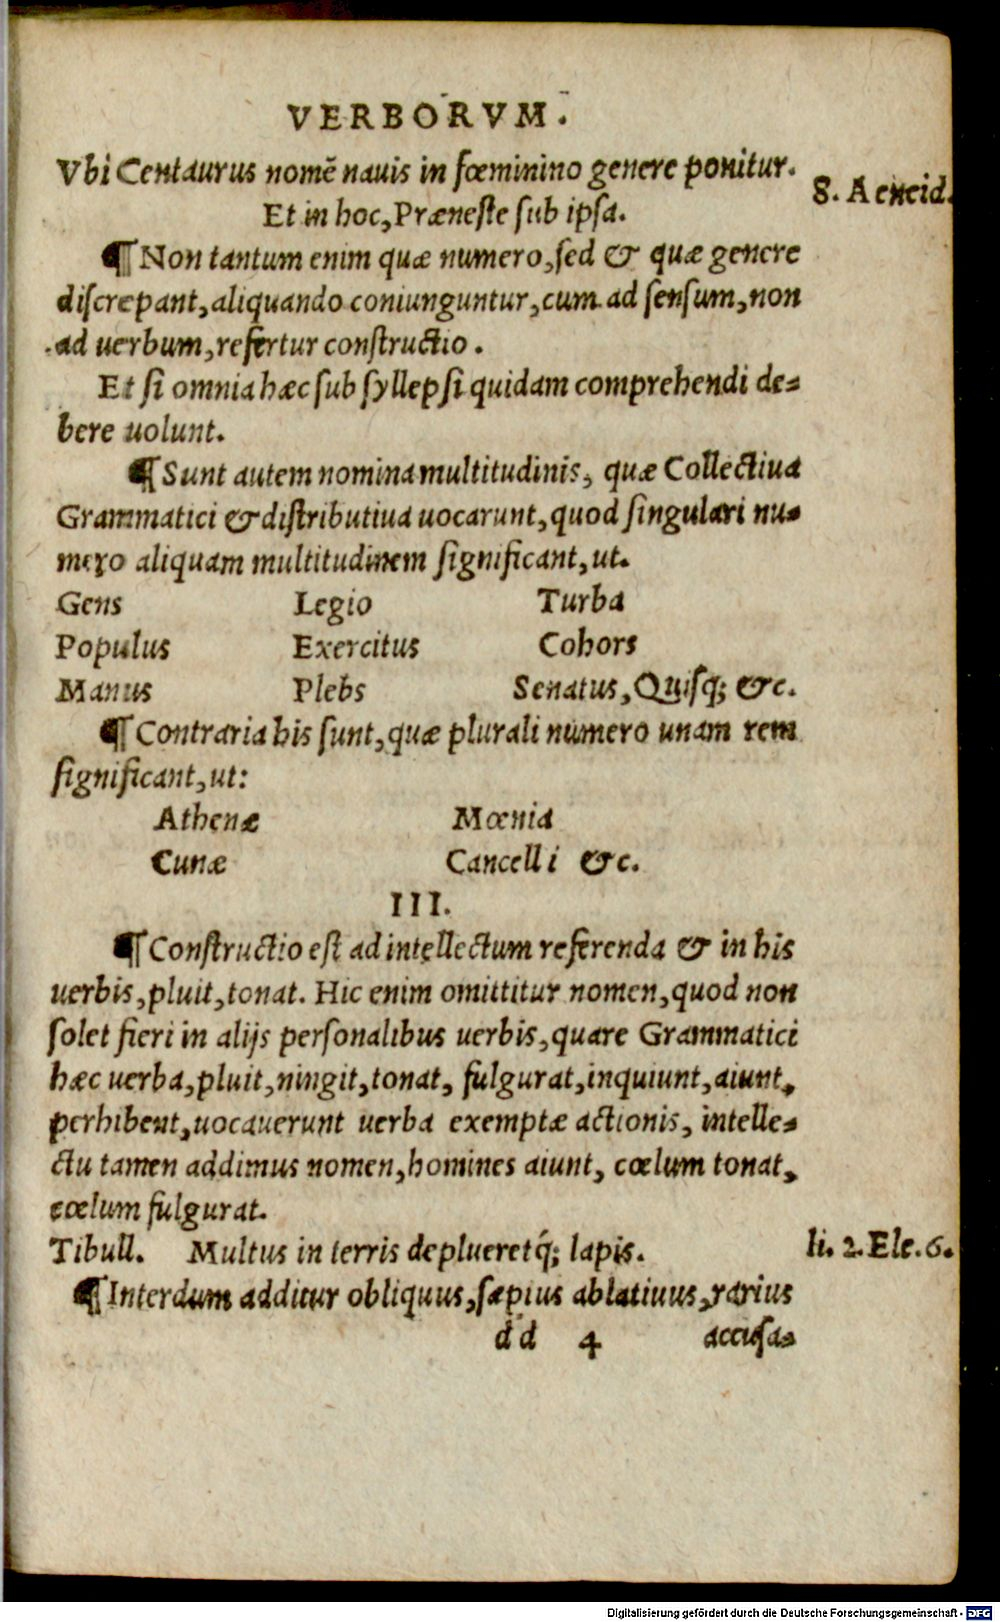 VERBORVM.
Vbi Centaurus nomē nauis in fœminino genere ponitur.
8. Aeneid.
Et in hoc, Præneste sub ipsa.
¶ Non tantum enim quæ numero, sed & quæ genere
discrepant, aliquando coniunguntur, cum ad sensum, non
ad uerbum, refertur constructio.
Et si omnia hæc sub syllepsi quidam comprehendi de=
bere uolunt.
¶ Sunt autem nomina multitudinis, quæ Collectiua
Grammatici & distributiua uocarunt, quod singulari nu=
mero aliquam multitudinem significant, ut.
Gens Legio Turba
Populus Exercitus Cohors
Manus Plebs Senatus, Quisq; &c.
¶ Contraria his sunt, quæ plurali numero unam rem
significant, ut:
Athenæ Mœnia
Cunæ Cancelli &c.
III.
¶ Constructio est ad intellectum referenda & in his
uerbis, pluit, tonat. Hic enim omittitur nomen, quod non
solet fieri in alijs personalibus uerbis, quare Grammatici
hæc uerba, pluit, ningit, tonat, fulgurat, inquiunt, aiunt,
perhibent, uocauerunt uerba exemptæ actionis, intelle=
ctu tamen addimus nomen, homines aiunt, cœlum tonat,
cœlum fulgurat.
Tibull. Multus in terris deplueretq́; lapis.
li. 2. Ele. 6.
¶ Interdum additur obliquus, sæpius ablatiuus, rarius
dd 4 accusa=
Digitalisierung gefördert durch die Deutsche Forschungsgemeinschaft - DFG